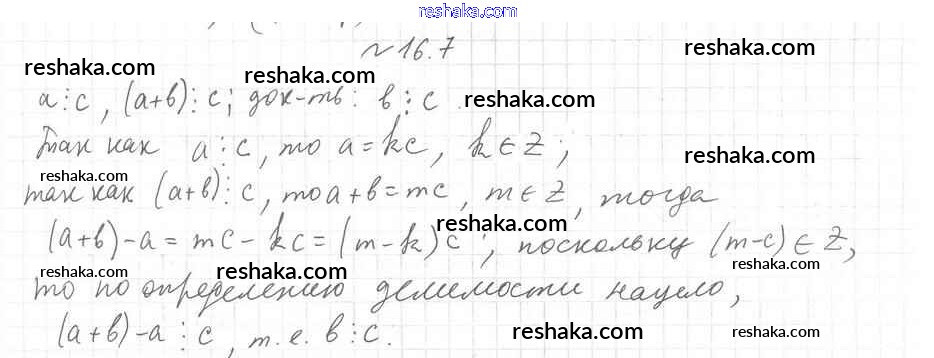 reshaka.com
№ 16.7
reshaka.com
reshaka.com
reshaka.com
a⋮c, (a+b)⋮c; док-ть: b⋮c
reshaka.com
Так как a⋮c, то a=kc, k∈Z;
reshaka.com
reshaka.com
так как (a+b)⋮c, то a+b=mc, m∈Z, тогда
reshaka.com
(a+b)-a=mc-kc=(m-k)c; поскольку (m-c)∈Z,
reshaka.com
reshaka.com
reshaka.com
то по определению делимости нацело,
(a+b)-a⋮c, т.е. b⋮c.
reshaka.com
reshaka.com